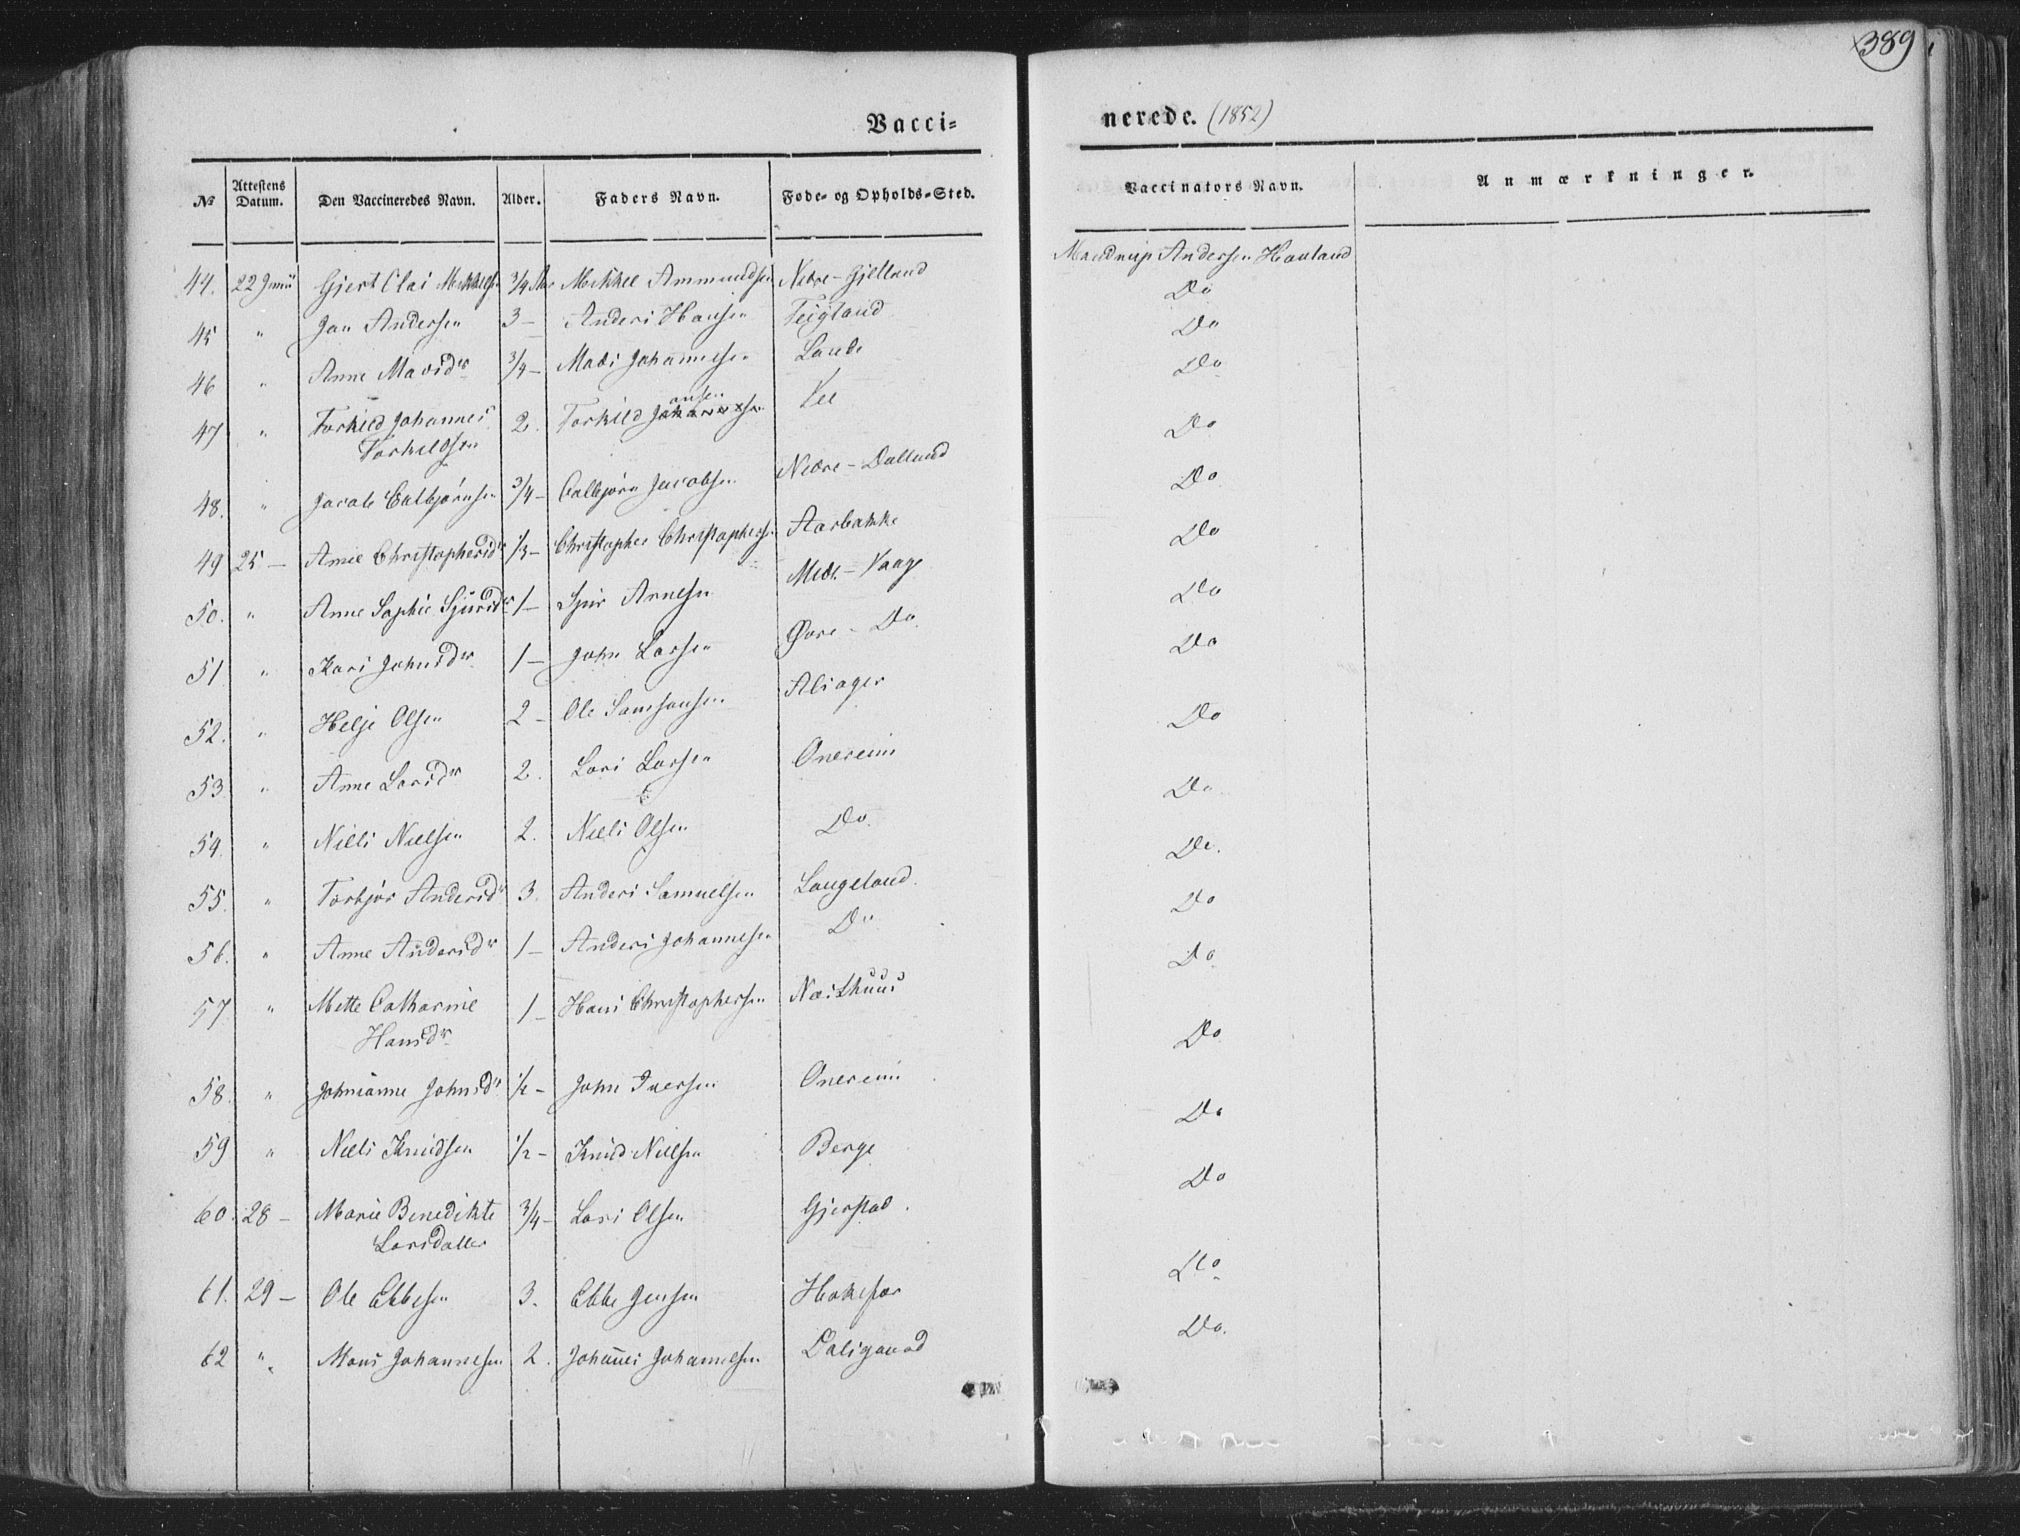 389
Vacci=
nerede. (1852)
№ Attestens Datum. Den Vaccineredes Navn. Alder. Faders Navn. Føde- og Opholds-Sted. Vaccinators Navn. Anmærkninger.
Mandrup Andersen Hauland
44. 22 Junii Gjert Olai Mikkels. 3/4 Mikkel Ammundsen Nedre-Gjelland Do
45 " Jan Andersen 3 – Anders Hansen Teigland Do
46 " Anne Madsdr 3/4 – Mads Johannesen Lande Do
ansen
47 " Torkild Johannes 2. Torkild Johannesen Vee Do
Torkildsen
48. " Jacob Colbjørnsen 3/4 – Colbjørn Jacobsen Nedre-Dalland Do
49 25 – Anne Christophersdr 1/3 – Christopher Christophers. Aarbakke Do
50. " Anne Sophie Sjursdr 1 – Sjur Arnesen Nedr.-Vaage Do
51 " Kari Johnsdr 1 – John Larsen Øvre – Do. Do
52. " Helje Olsen 2 – Ole Samsonsen Alsager Do
53 " Anne Larsdr 2. Lars Larsen Onereim Do
54. " Niels Nielsen 2. Niels Olsen Do. Do.
55. " Torbjør Andersdr 3. Anders Samuelsen Langeland. Do
56. " Anne Andersdr 1 – Anders Johannesen Do Do
57 " Mette Catharine 1 – Hans Christophersen Næsthuus Do
Hansdr
58. " Johnianne Johnsdr 1/2 – John Iversen Onereim Do
59 " Niels Knudsen 1/2 – Knud Nielsen Berge Do
60. 28 – Marie Benedikte 3/4 – Lars Olsen Gjerstad. Do
Larsdatter
61. 29 – Ole Ebbesen 3. Ebbe Jensen Hakefær Do
62 " Mons Johannesen 2. Johannes Johannesen Dalsgaard Do.